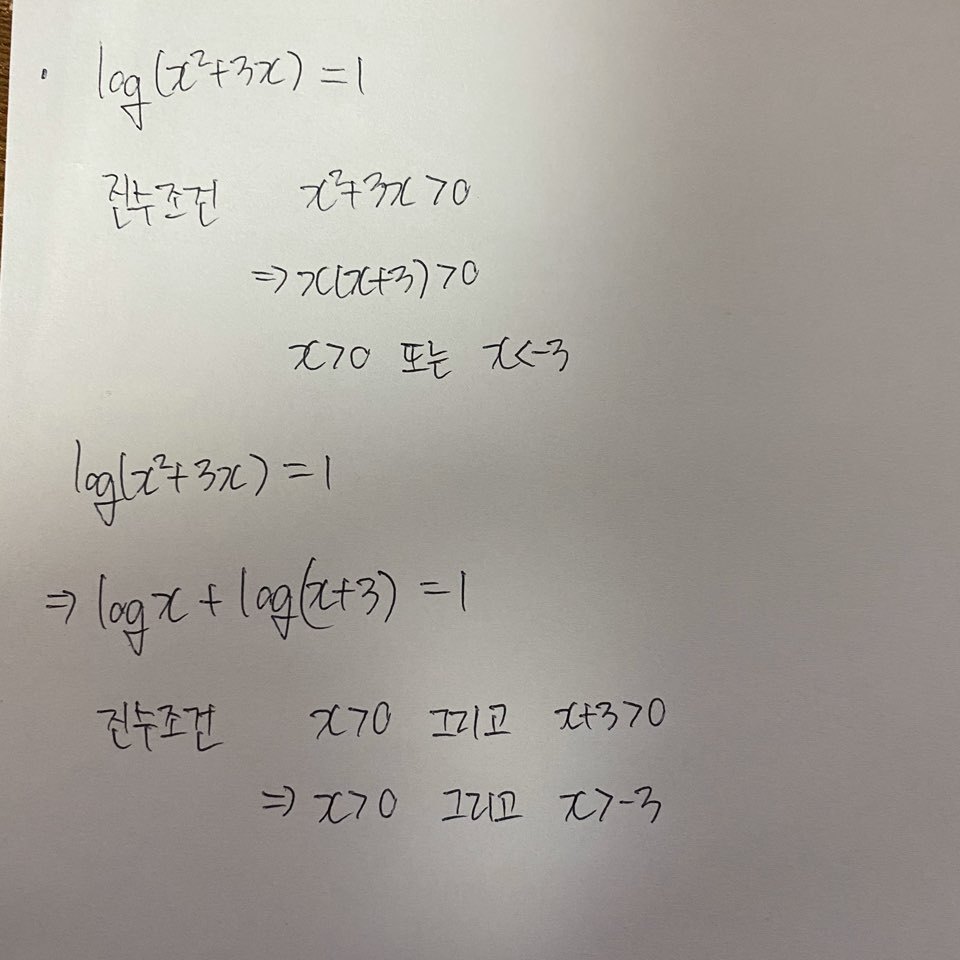 log(x²+3x)=1
진수조건 x²+3x>0
⇒x(x+3)>0
x>0 또는 x<-3
log(x²+3x)=1
⇒ logx + log(x+3) =1
진수조건 x>0 그리고 x+3>0
⇒ x>0 그리고 x>-3